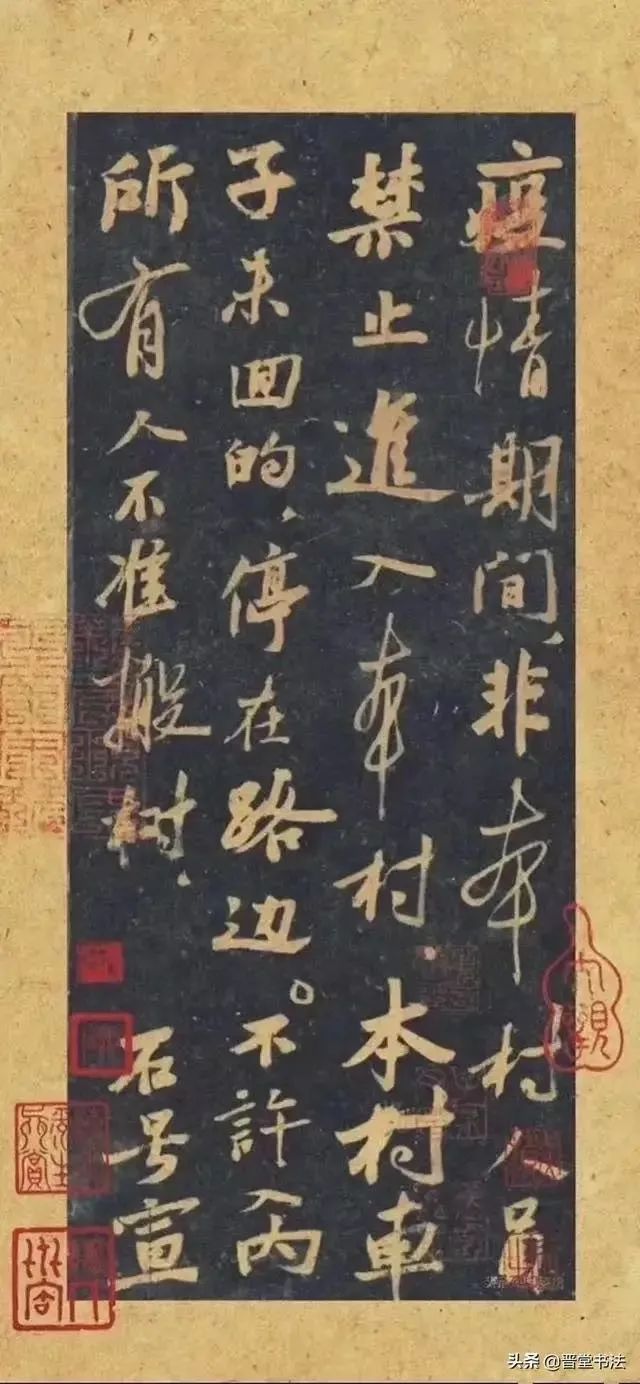 疫情期间,非本村人员
禁止進入本村本村車
子未回的,停在路边。不許入内
所有人不准搬树.
石号宣
大觀
头条 @晋堂书法